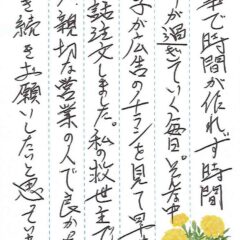 事で時間が作れず時間
が過ぎていく毎日。そんな中
子が広告のチラシを見て早
話注文しました。私の救世主で
親切な営業の人で良かっ
き続きお願いしたいと思ってい